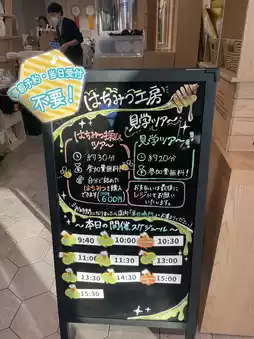 事前予約・当日受付
不要！
はちみつ工房
見学ツアー
はちみつ
ツアー
約30分
参加費無料！
自分で詰めた
はちみつを購入
できます！
600円
見学ツアー
約20分
参加費無料！
お支払いは最後に
レジにてお願い
いたします。
〜本日の開催スケジュール〜
9:40 10:00 10:30
11:00 11:30 13:00
13:30 14:30 15:00
15:30